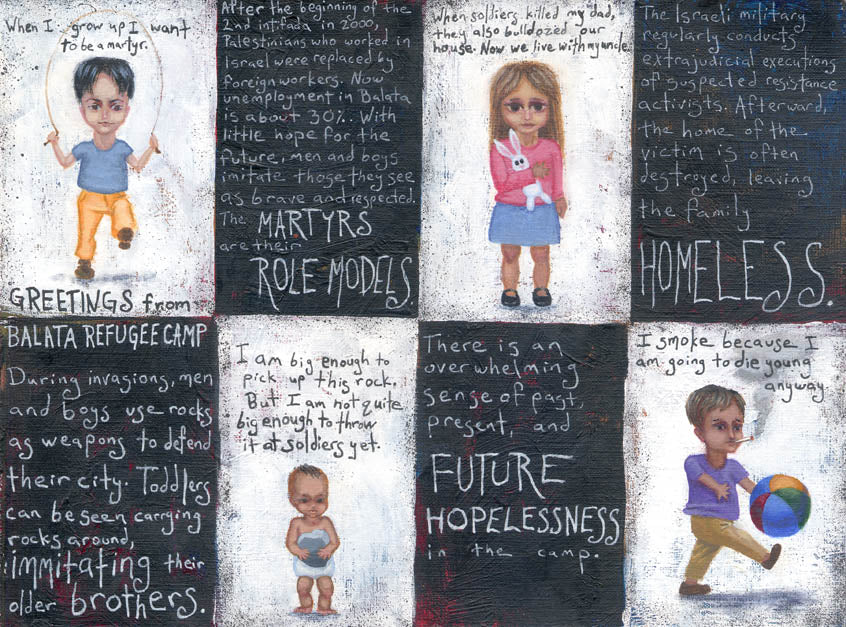 When I grow up I want
to be a martyr.
After the beginning of the
2nd intifada in 2000,
Palestinians who worked in
Israel were replaced by
foreign workers. Now
unemployment in Balata
is about 30%. With
little hope for the
future, men and boys
imitate those they see
as brave and respected.
The MARTYRS
are their
ROLE MODELS.
When soldiers killed my dad,
they also bulldozed our
house. Now we live with my uncle.
The Israeli military
regularly conducts
extrajudicial executions
of suspected resistance
activists. Afterward,
the home of the
victim is often
destroyed, leaving
the family
HOMELESS.
GREETINGS from
BALATA REFUGEE CAMP
During invasions, men
and boys use rocks
as weapons to defend
their city. Toddlers
can be seen carrying
rocks around,
immitating their
older brothers.
I am big enough to
pick up this rock.
But I am not quite
big enough to throw
it at soldiers yet.
There is an
overwhelming
sense of past,
present, and
FUTURE
HOPELESSNESS
in the camp.
I smoke because I
am going to die young
anyway.